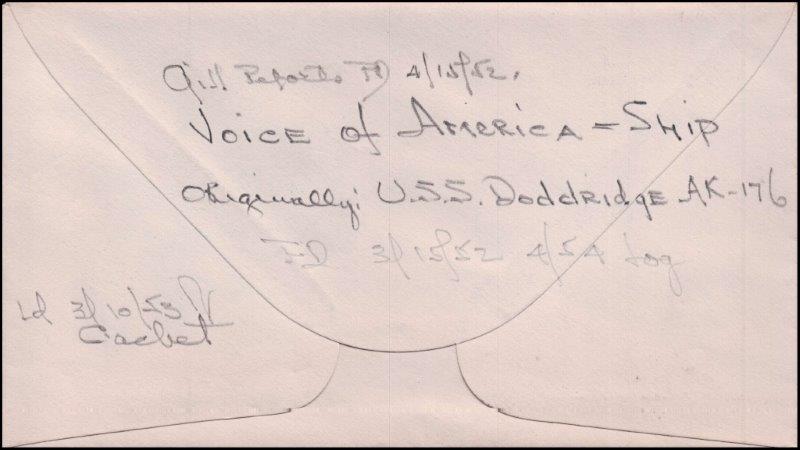 Gill Reports FD 4/15/52.
VOICE of AMERICA - SHIP
Originally: U.S.S. Doddridge AK-176
FD 3/15/52 4/54 Log
Ld 3/10/53
Cachet